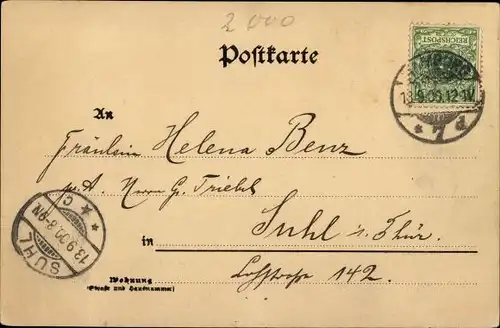 2000
Postkarte
REICHSPOST
13.9.00.12-1V
* 7 d
An
Fräulein Helena Benz
p. A. Herrn G. Triebel
Suhl i/Thür.
in
142.
Wohnung
(Straße und Hausnummer)
SUHL
13.9.00.8-9N
* * C